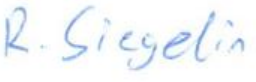 R. Siegelin